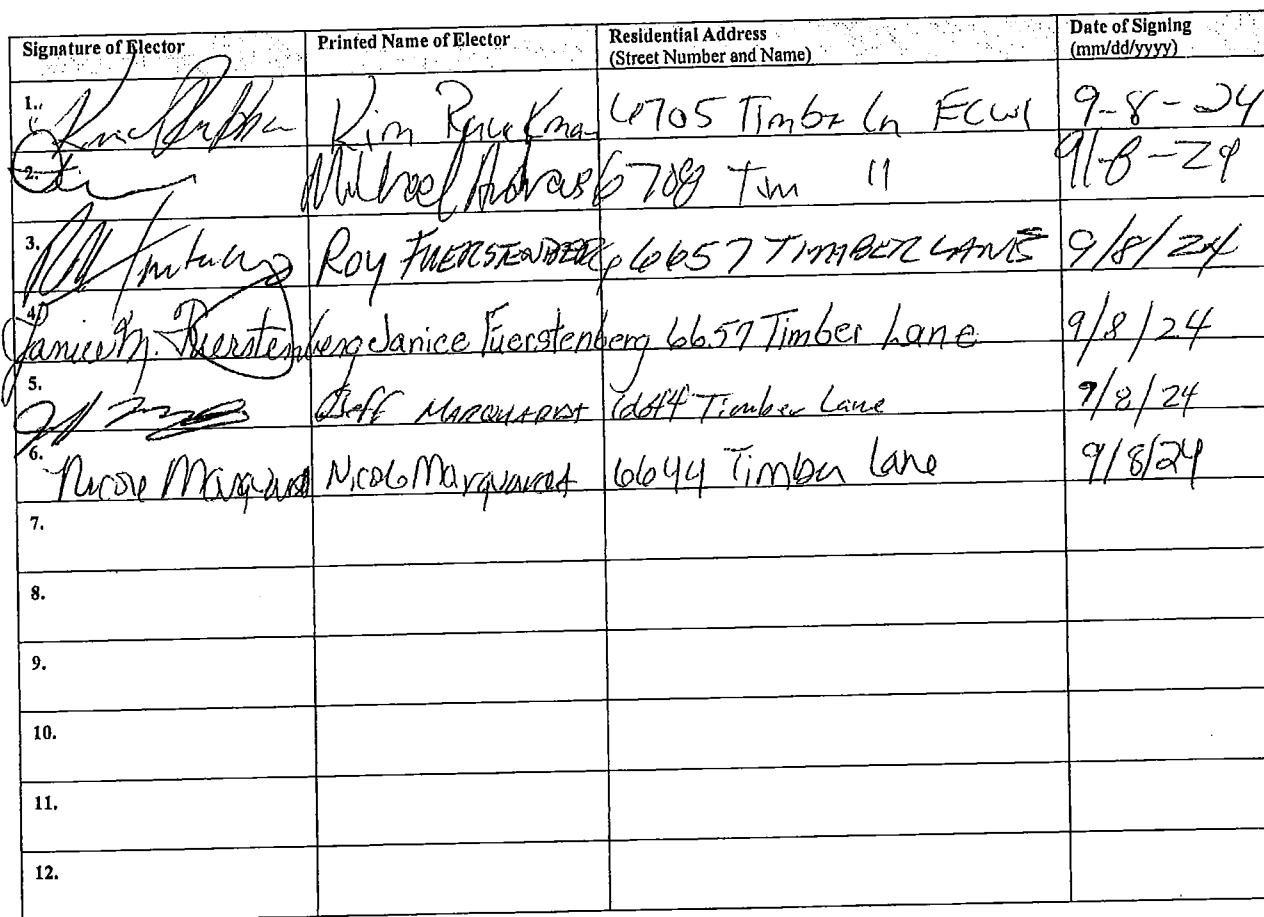 Signature of Elector Printed Name of Elector Residential Address Date of Signing
(Street Number and Name) (mm/dd/yyyy)
1. Kim 6705 Timbr Ln ECWI 9-8-24
2. 6708 Tim 11 9-8-24
3. Roy FUERSTENBERG 6657 TIMBER LANE 9/8/24
4. Janice M. Fuerstenberg Janice Fuerstenberg 6657 Timber Lane 9/8/24
5. Jeff MARQUARDT 6644 Timber Lane 9/8/24
6. Nicole Marquardt Nicole Marquardt 6644 Timber Lane 9/8/24
7.
8.
9.
10.
11.
12.